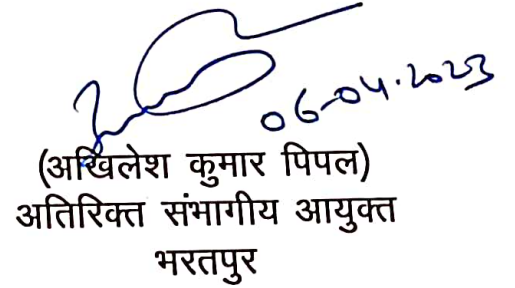 06-04-2023
(अखिलेश कुमार पिपल)
अतिरिक्त संभागीय आयुक्त
भरतपुर